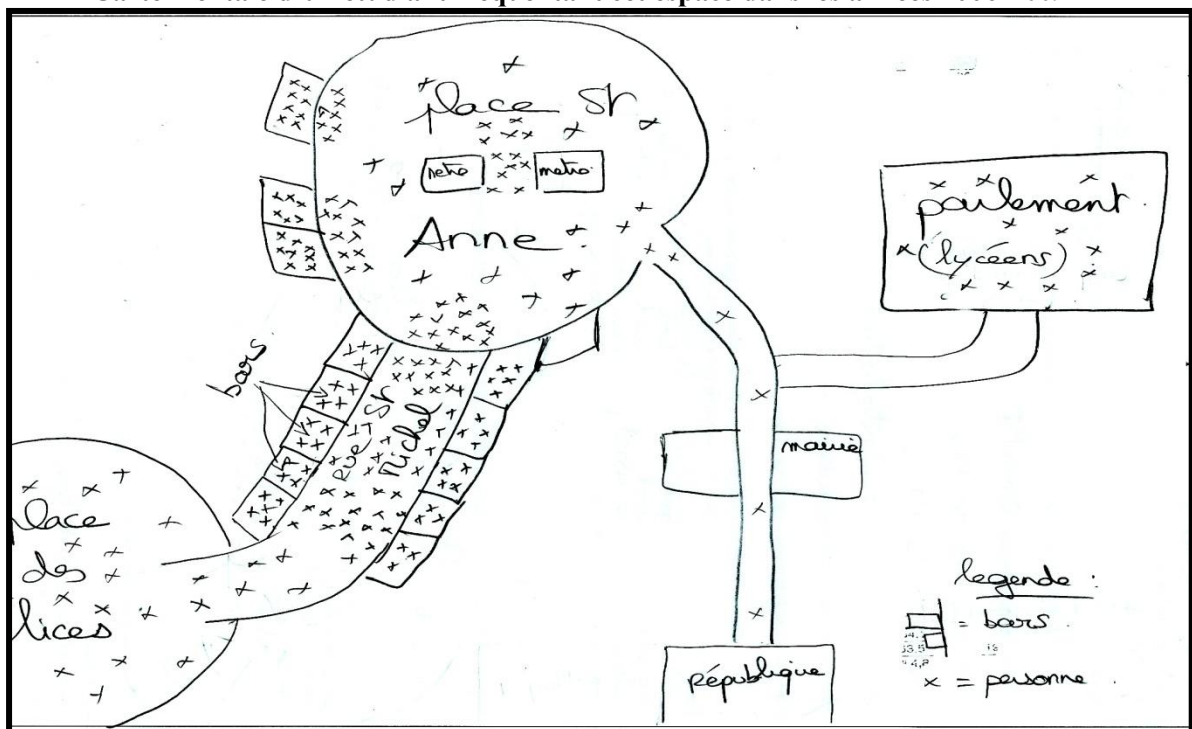 place St
metro
metro
Anne
parlement
(lycéens)
bars
Rue St
Michel
mairie
place
des
lices
république
legende :
= bars
x = personne